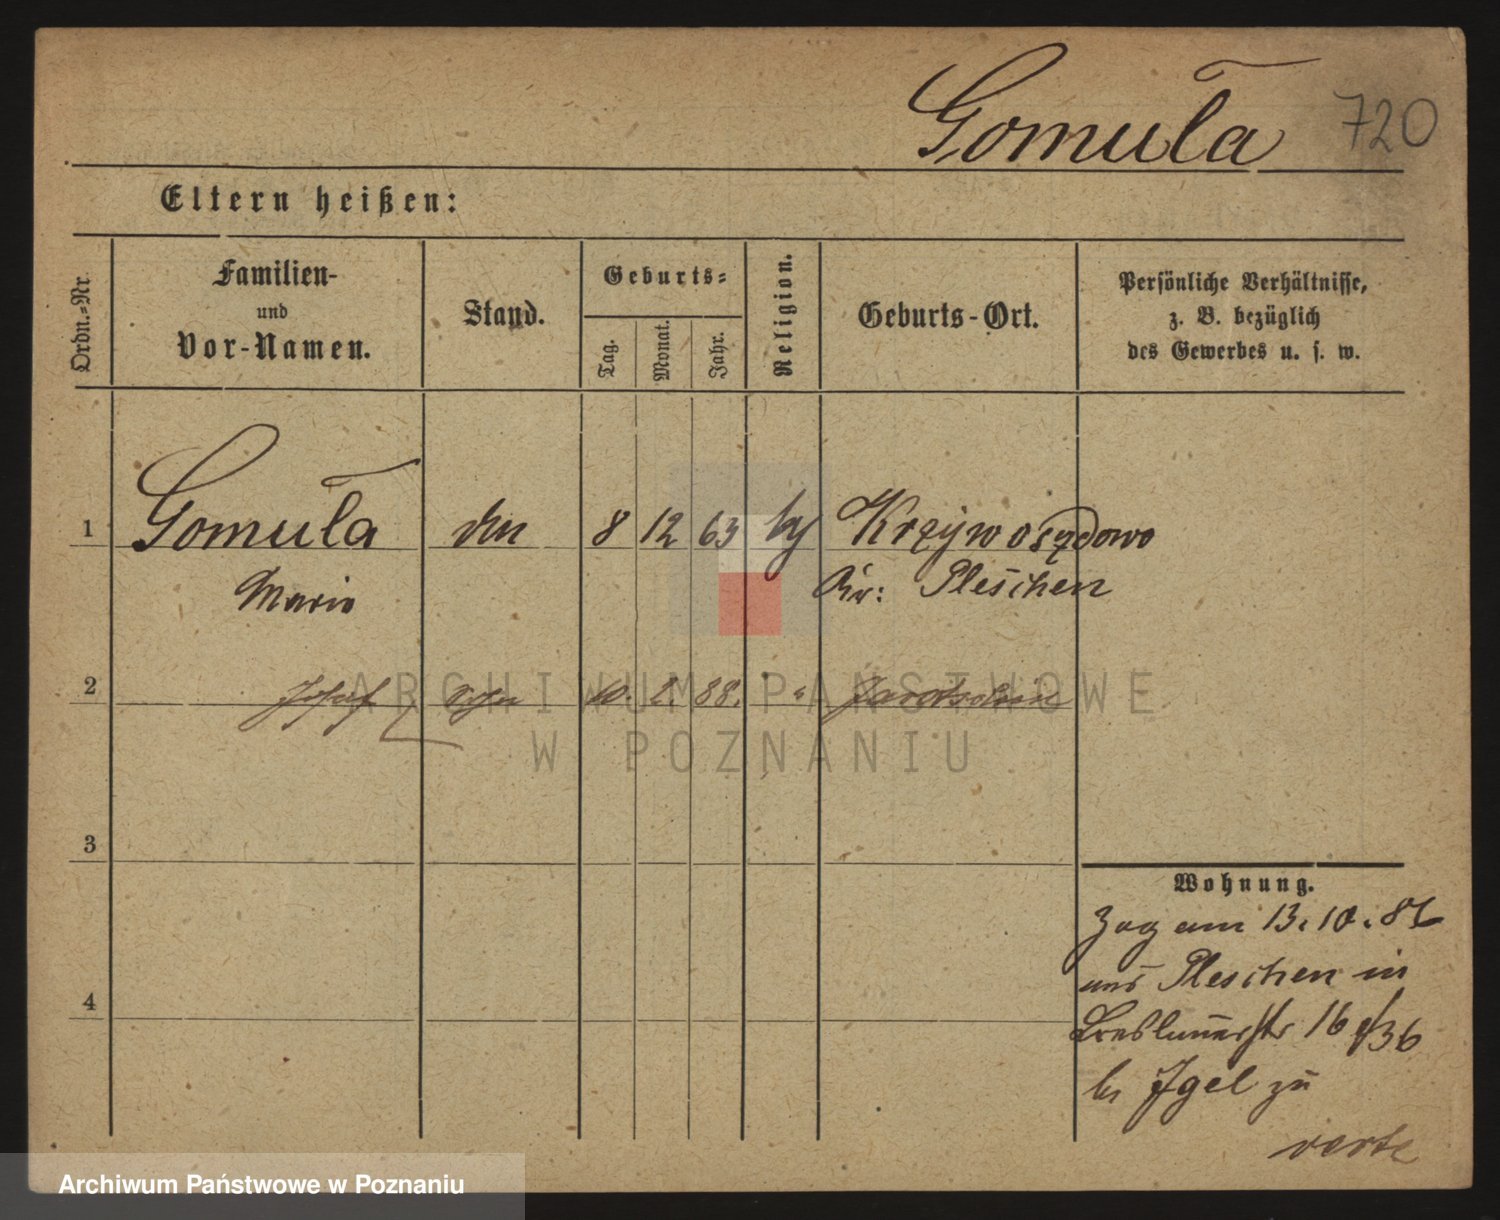 Gomuła 720
Eltern heißen:
Ordn.-Nr.
Familien-
und
Vor-Namen.
Stand.
Geburts-
Tag.
Monat.
Jahr.
Religion.
Geburts-Ort.
Persönliche Verhältnisse,
z. B. bezüglich
des Gewerbes u. s. w.
1 Gomuła 8 12 63 Krzywosądowo
Marie Kr: Pleschen
2 Josef 88. " Jarotschin
3
4
Wohnung.
Zog am 13.10.86
aus Pleschen in
16
Igel zu
verte
ARCHIWUM PAŃSTWOWE
W POZNANIU
Archiwum Państwowe w Poznaniu